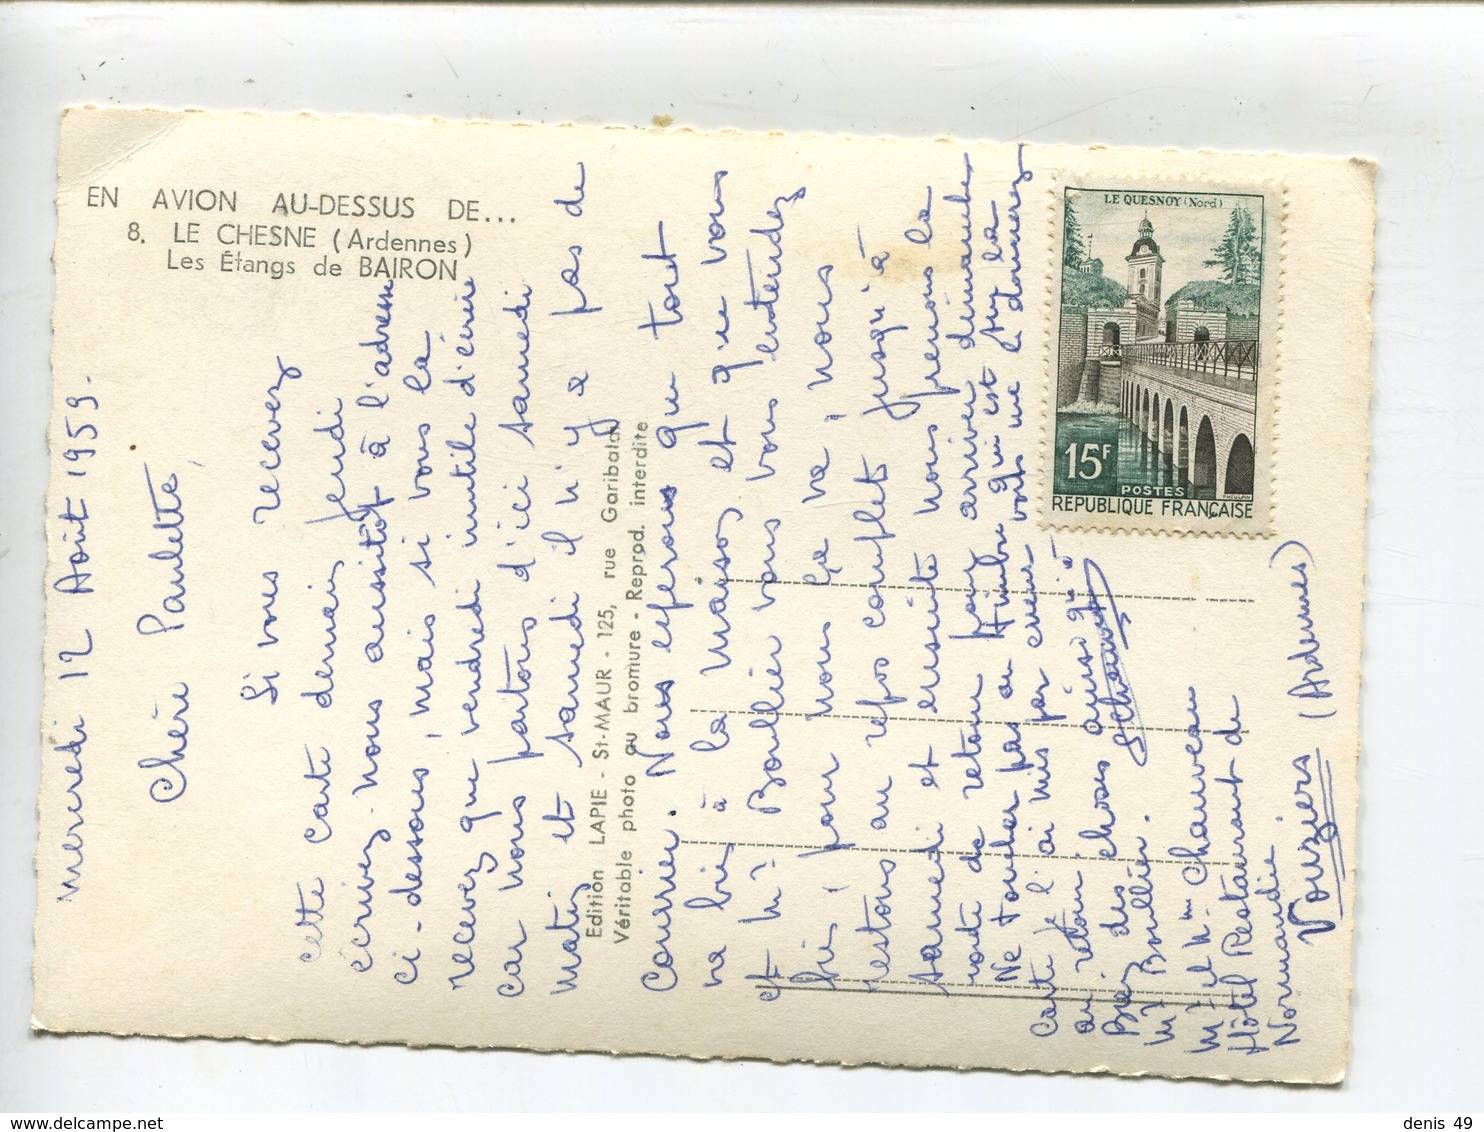 EN AVION AU-DESSUS DE...
8. LE CHESNE (Ardennes)
Les Étangs de BAIRON
Mercredi 12 Août 1959.
Chère Paulette,
Si vous recevez
cette carte demain jeudi
écrivez-nous aussitôt à l'adresse
ci-dessous, mais si vous la
recevez que vendredi inutile d'écrire
car nous partons d'ici samedi
matin et samedi il n'y a pas de
courrier. Nous espérons que tout
va bien à la maison et que vous
et Mr Boullier vous vous entendez
bien, pour nous ça va, nous
restons au repos complet jusqu'à
samedi et ensuite nous prenons la
route de retour pour arriver dimanche
Ne toucher pas au timbre qui est sur la
carte l'ai mis par erreur vous me le donnerez
au retour.
Bien des choses ainsi qu'à
Mr Boullier.
GChauveau
Mr et Mme Chauveau
Hôtel Restaurant de
Normandie
Vouziers (Ardennes)
Edition LAPIE - St-MAUR - 125, rue Garibaldi
Véritable photo au bromure - Reprod. interdite
LE QUESNOY (Nord)
15F
POSTES
REPUBLIQUE FRANÇAISE
denis 49